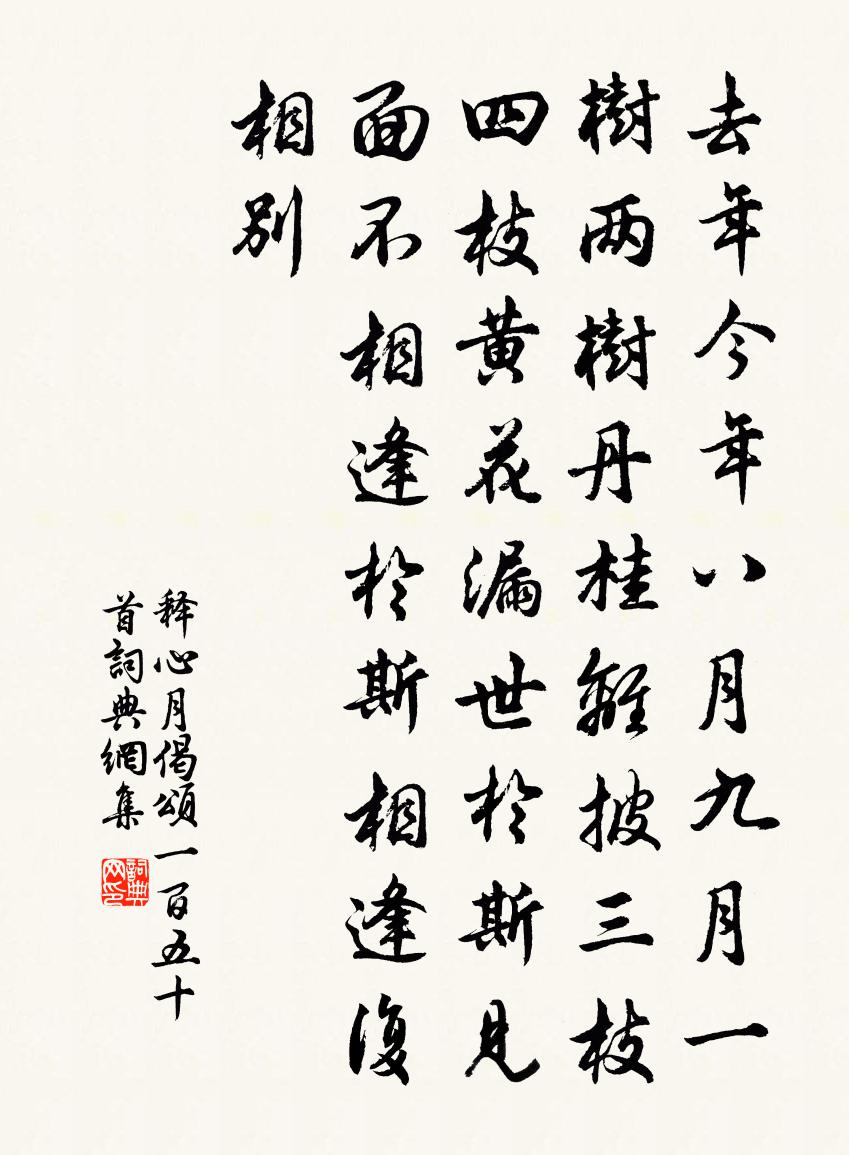 去年今年八月九月一
樹两樹丹桂離披三枝
四枝黄花漏世於斯見
面不相逢於斯相逢復
相别
释心月偈頌一百五十
首詞典網集
詞典网印